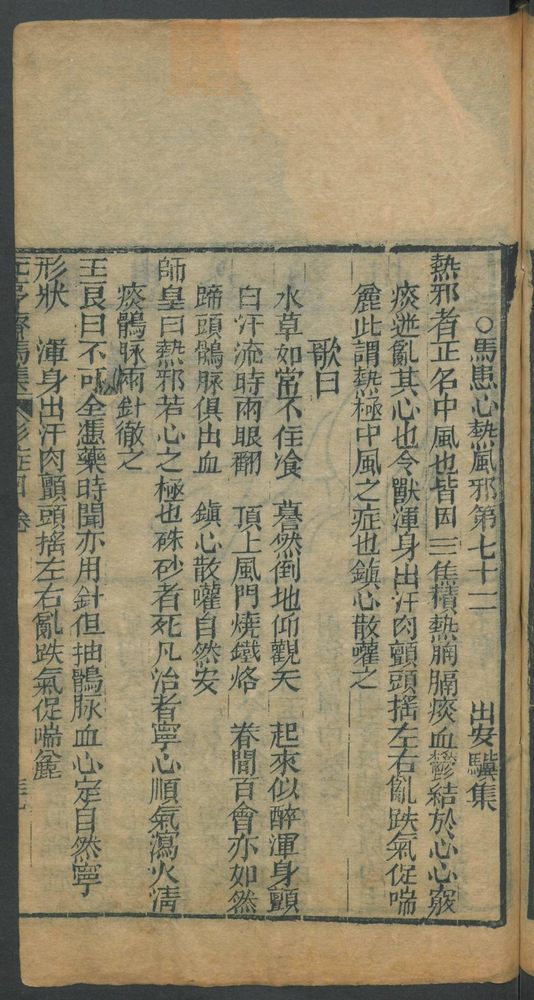 ○馬患心熱風邪第七十二　出安驥集
熱邪者正名中風也皆因三焦積熱胸膈痰血鬱結於心心竅
痰迷亂其心也令獸渾身出汗肉顫頭搖左右亂跌氣促喘
麄此謂熱極中風之症也鎮心散嚾之
歌曰
水草如常不住飡　驀然倒地仰觀天　起來似醉渾身顫
白汗流時兩眼翻　頂上風門燒鐵烙　脊間百會亦如然
蹄頭鶻脉俱出血　鎮心散嚾自然安
師皇曰熱邪若心之極也硃砂者死凡治者寧心順氣瀉火清
痰鶻脉兩針徹之
王良曰不可全憑藥時聞亦用針但抽鶻脉血心定自然寧
形狀　渾身出汗肉顫頭搖左右亂跌氣促喘麄